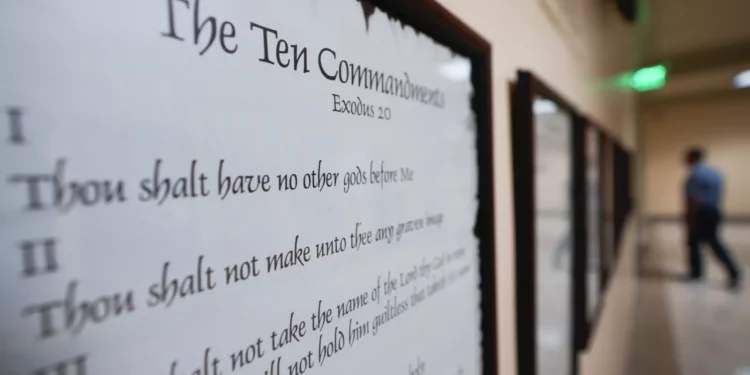 The Ten Commandments
Exodus 20
I
Thou shalt have no other gods before Me
II
Thou shalt not make unto thee any graven image
III
shalt not take the name of the Lord thy God in
will not hold him guiltless that taketh